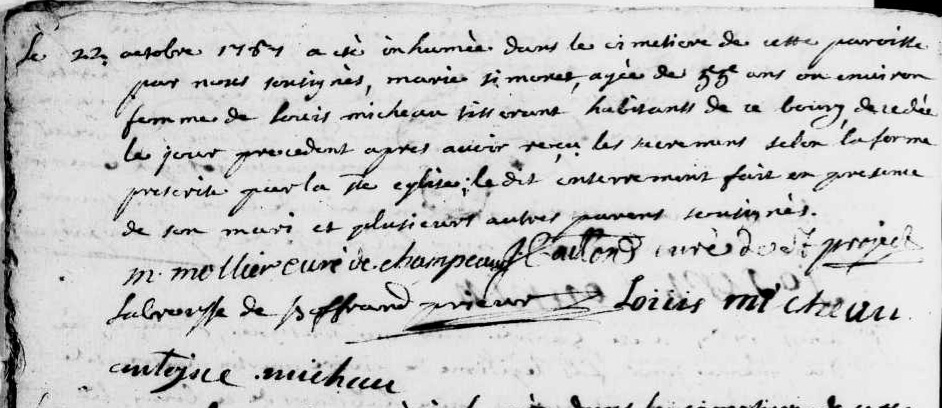 le 22 octobre 1767 a eté inhumée dans le cimetiere de cette paroisse
par nous soutsignès, marie simonet, agée de 55 ans ou environ
femme de Louis micheau tisserant habitants de ce bourg, decedée
le jour precedent apres avoir reçu les sacremens selon la forme
prescrite par la Ste eglise; le dit enterrement fait en presence
de son mari et plusieurs autres parens soutsignès.
m. mollier curé de champeau curè de St project
Labrousse de Boffrand prieur Louis micheau
antoine michau
dans le cimetiere de cette